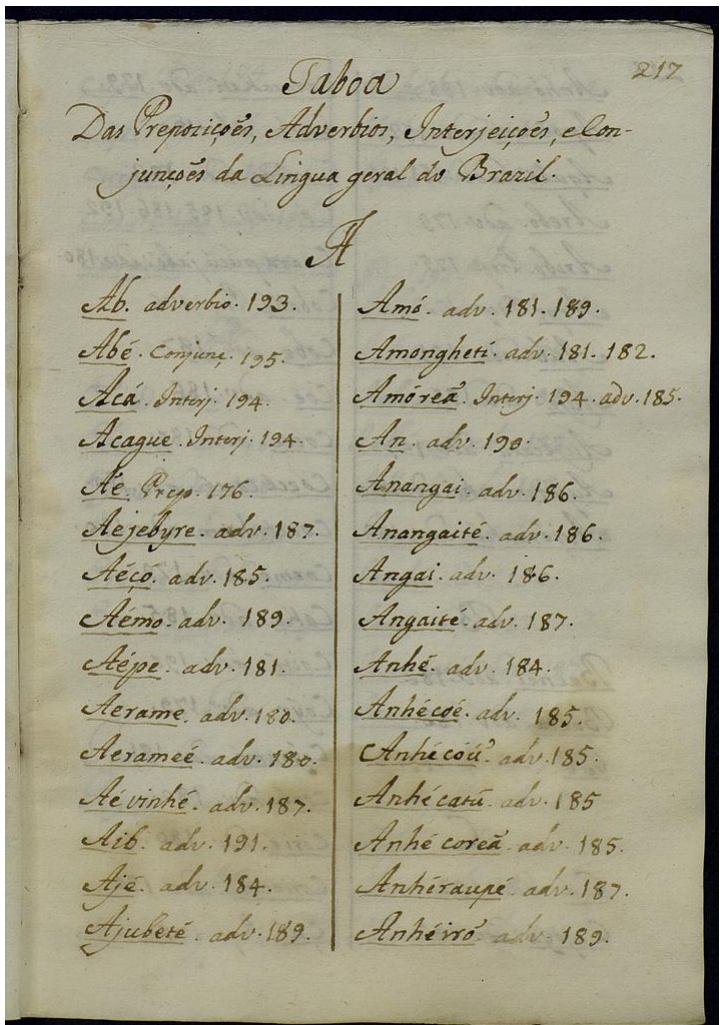 217
Taboa
Das Preposições, Adverbios, Interjeições, e Con-
junções da Lingua geral do Brazil.
A
Ab. adverbio. 193.
Abé. Conjunç. 195.
Acá. Interj. 194.
Acague. Interj. 194.
Aé. Prep. 176.
Aejebyre. adv. 187.
Aéço. adv. 185.
Aémo. adv. 189.
Aépe. adv. 181.
Aerame. adv. 180.
Aerameé. adv. 180.
Aévinhé. adv. 187.
Aib. adv. 191.
Ajé. adv. 184.
Ajubeté. adv. 189.
Amó. adv. 181. 189.
Amonghetí. adv. 181. 182.
Amóreã. Interj. 194. adv. 185.
An. adv. 190.
Anangai. adv. 186.
Anangaité. adv. 186.
Angai. adv. 186.
Angaité. adv. 187.
Anhé. adv. 184.
Anhécoé. adv. 185.
Anhécoú. adv. 185.
Anhécatú. adv. 185
Anhécoreã. adv. 185.
Anhéraupé. adv. 187.
Anhéiró. adv. 189.